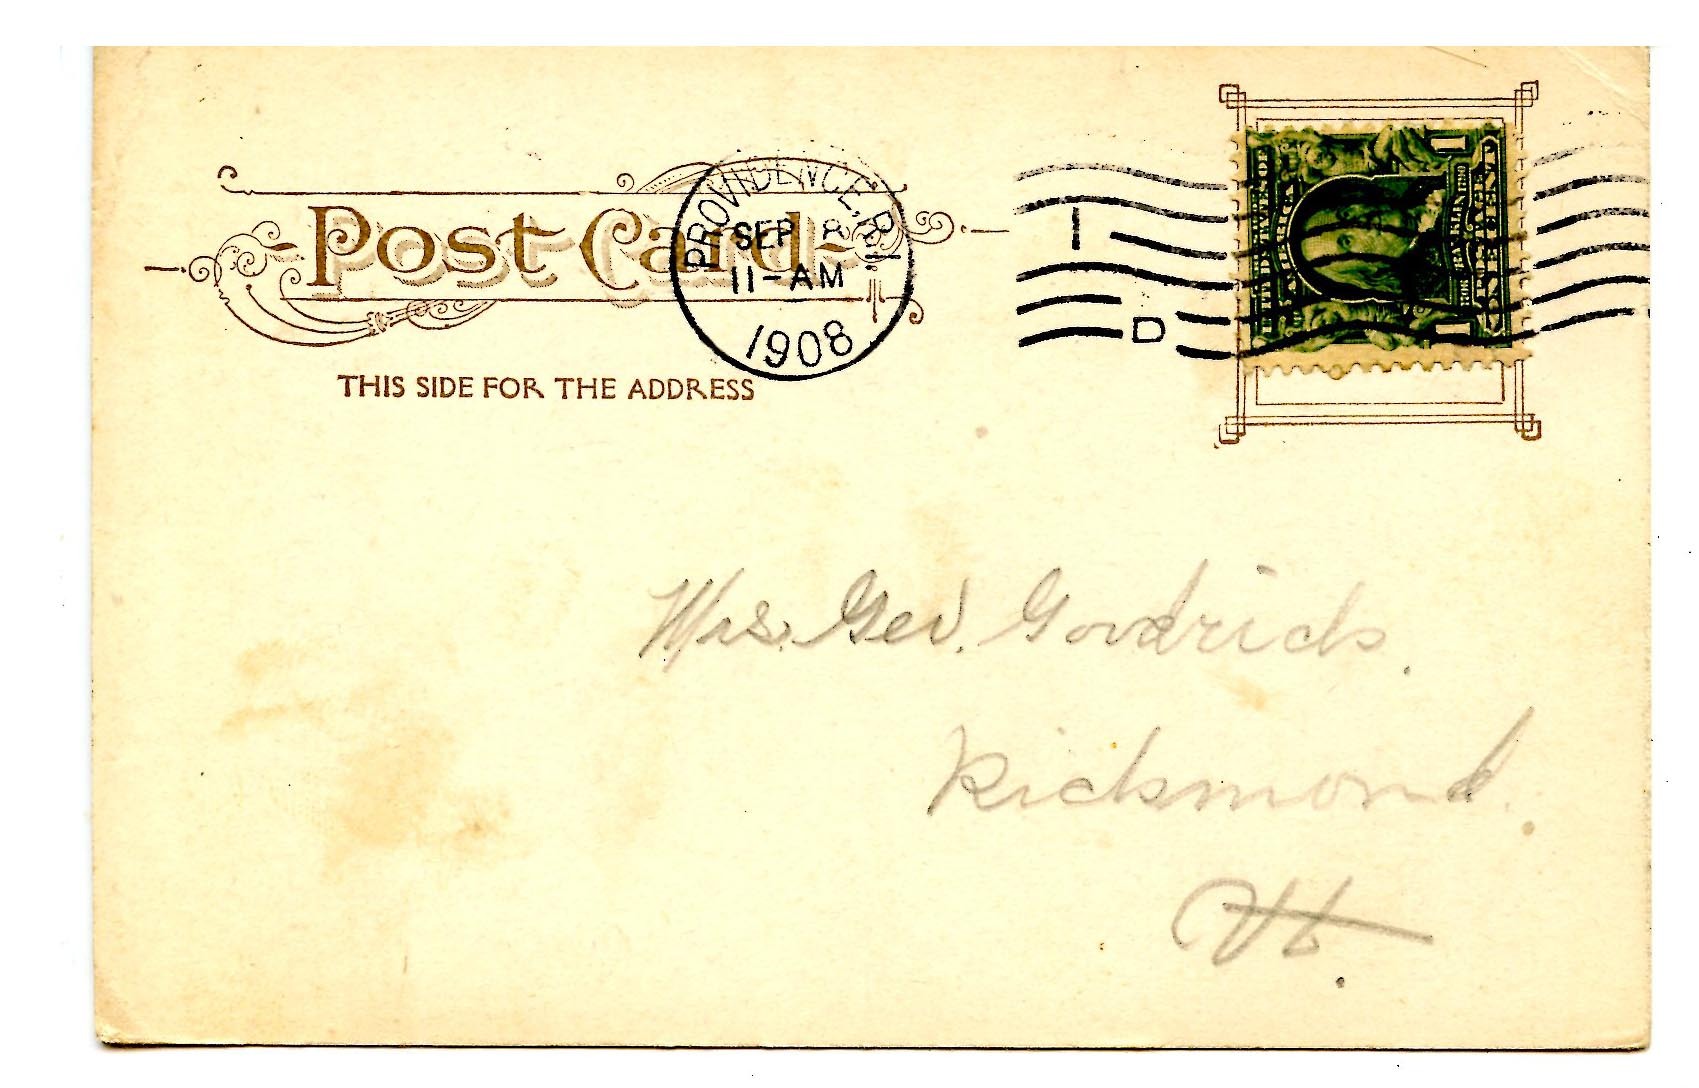 Post Card
PROVIDENCE, R.I.
SEP 8
11-AM
1908
I
D
THIS SIDE FOR THE ADDRESS
Mrs. Geo. Goodrich.
Richmond.
Vt.